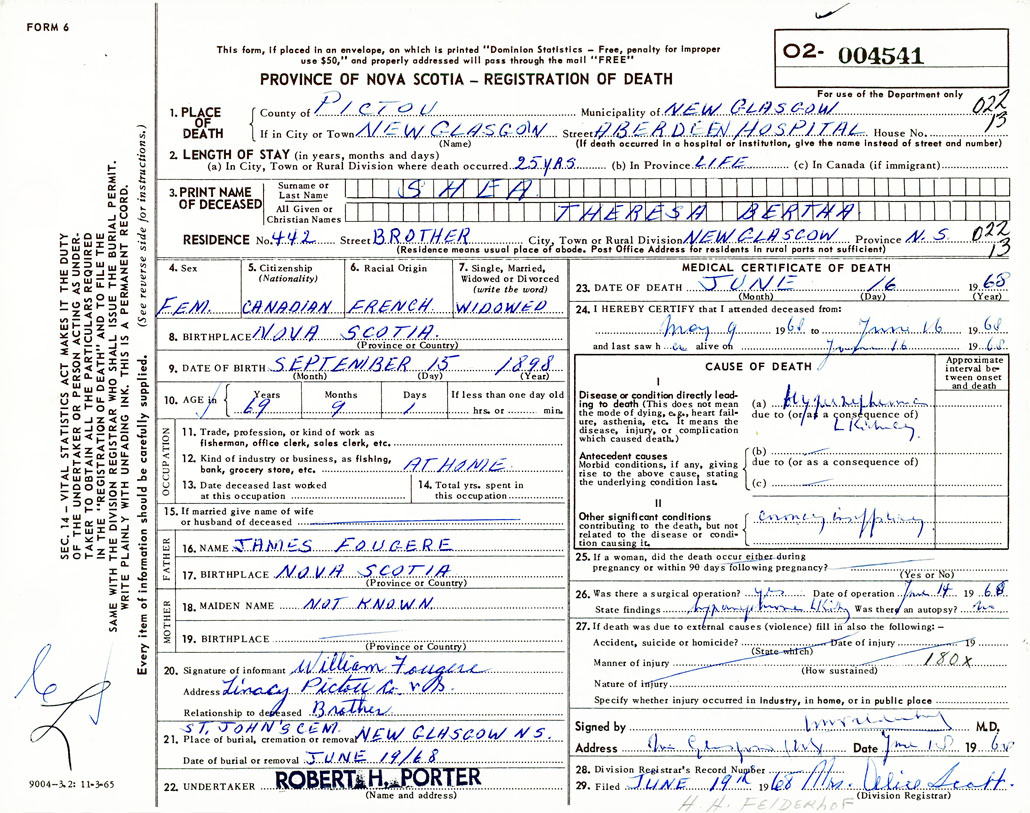 FORM 6
This form, if placed in an envelope, on which is printed "Dominion Statistics – Free, penalty for improper
use $50," and properly addressed will pass through the mail "FREE"
PROVINCE OF NOVA SCOTIA – REGISTRATION OF DEATH
02- 004541
For use of the Department only
022
13
1. PLACE OF DEATH
County of PICTOU Municipality of NEW GLASGOW
If in City or Town NEW GLASGOW Street ABERDEEN HOSPITAL House No.
(Name) (If death occurred in a hospital or institution, give the name instead of street and number)
2. LENGTH OF STAY (in years, months and days)
(a) In City, Town or Rural Division where death occurred 25 YRS (b) In Province LIFE (c) In Canada (if immigrant)
3. PRINT NAME OF DECEASED
Surname or Last Name SHEA
All Given or Christian Names THERESA BERTHA
RESIDENCE No. 442 Street BROTHER City, Town or Rural Division NEW GLASGOW Province N.S. 022
13
(Residence means usual place of abode. Post Office Address for residents in rural parts not sufficient)
4. Sex
FEM.
5. Citizenship (Nationality)
CANADIAN
6. Racial Origin
FRENCH
7. Single, Married, Widowed or Divorced (write the word)
WIDOWED
8. BIRTHPLACE NOVA SCOTIA.
(Province or Country)
9. DATE OF BIRTH SEPTEMBER 15 1898
(Month) (Day) (Year)
10. AGE in Years Months Days If less than one day old
69 9 1 hrs. or min.
OCCUPATION
11. Trade, profession, or kind of work as
fisherman, office clerk, sales clerk, etc.
12. Kind of industry or business, as fishing,
bank, grocery store, etc. AT HOME.
13. Date deceased last worked
at this occupation
14. Total yrs. spent in
this occupation
15. If married give name of wife
or husband of deceased
FATHER
16. NAME JAMES FOUGERE
17. BIRTHPLACE NOVA SCOTIA
(Province or Country)
MOTHER
18. MAIDEN NAME NOT KNOWN
19. BIRTHPLACE
(Province or Country)
20. Signature of informant William Fougere
Address Linacy Pictou Co. N.S.
Relationship to deceased Brother
ST. JOHN'S CEM.
21. Place of burial, cremation or removal NEW GLASGOW N.S.
Date of burial or removal JUNE 19/68
22. UNDERTAKER ROBERT H. PORTER
(Name and address)
MEDICAL CERTIFICATE OF DEATH
23. DATE OF DEATH JUNE 16 1968
(Month) (Day) (Year)
24. I HEREBY CERTIFY that I attended deceased from:
May 9 1968 to June 16 1968
and last saw her alive on June 16 1968.
CAUSE OF DEATH
Approximate interval between onset and death
I
Disease or condition directly leading to death (This does not mean the mode of dying, e.g., heart failure, asthenia, etc. It means the disease, injury, or complication which caused death.)
(a) Hypernephroma
due to (or as a consequence of)
L Kidney
Antecedent causes
Morbid conditions, if any, giving rise to the above cause, stating the underlying condition last.
(b)
due to (or as a consequence of)
(c)
II
Other significant conditions contributing to the death, but not related to the disease or condition causing it.
25. If a woman, did the death occur either during
pregnancy or within 90 days following pregnancy?
(Yes or No)
26. Was there a surgical operation? yes Date of operation June 14 1968
State findings hypernephroma L Kidney Was there an autopsy? no
27. If death was due to external causes (violence) fill in also the following: –
Accident, suicide or homicide? Date of injury 19
(State which)
Manner of injury 180X
(How sustained)
Nature of injury
Specify whether injury occurred in industry, in home, or in public place
Signed by M.D.
Address New Glasgow Date June 18 1968
28. Division Registrar's Record Number
29. Filed JUNE 19th 1968 Mrs. Alice Scott.
(Division Registrar)
H. H. FELDERHOF
SEC. 14 – VITAL STATISTICS ACT MAKES IT THE DUTY
OF THE UNDERTAKER OR PERSON ACTING AS UNDER-
TAKER TO OBTAIN ALL THE PARTICULARS REQUIRED
IN THE "REGISTRATION OF DEATH" AND TO FILE THE
SAME WITH THE DIVISION REGISTRAR WHO SHALL ISSUE THE BURIAL PERMIT.
WRITE PLAINLY WITH UNFADING INK. THIS IS A PERMANENT RECORD.
Every item of information should be carefully supplied. (See reverse side for instructions.)
9004-3.2: 11-3-65